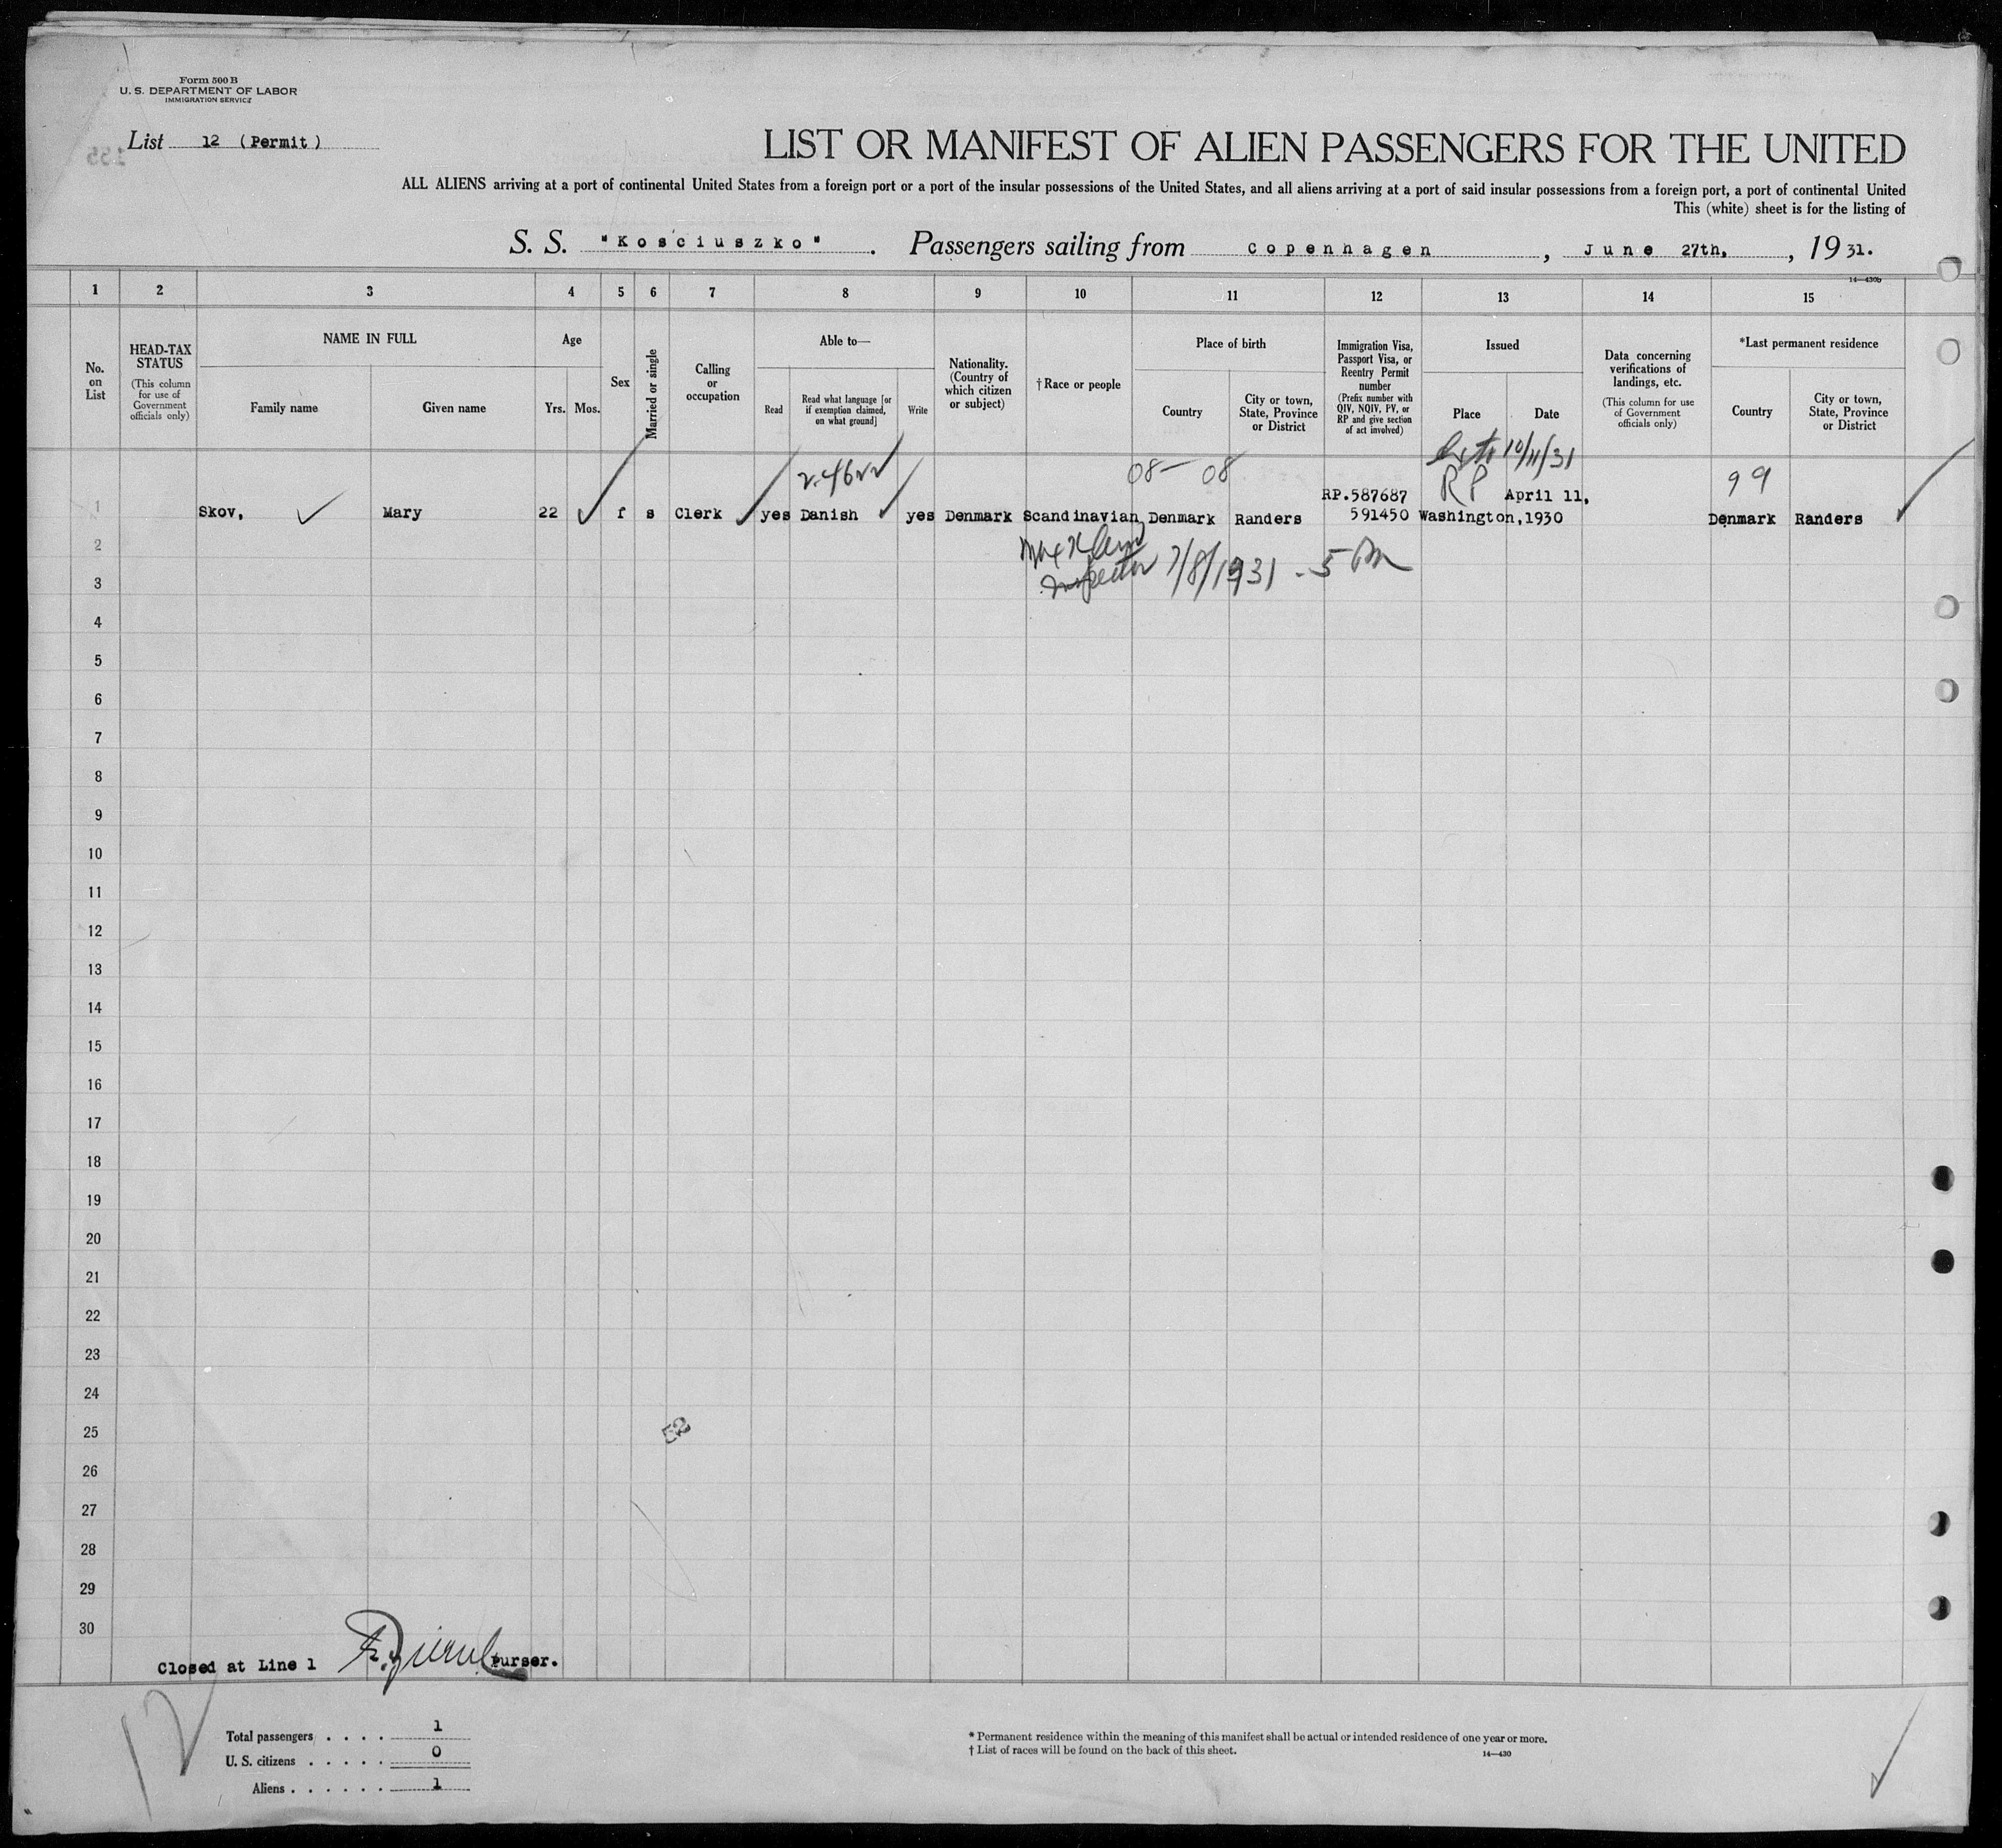 Form 500 B
U. S. DEPARTMENT OF LABOR
IMMIGRATION SERVICE
List 12 (Permit)
LIST OR MANIFEST OF ALIEN PASSENGERS FOR THE UNITED
ALL ALIENS arriving at a port of continental United States from a foreign port or a port of the insular possessions of the United States, and all aliens arriving at a port of said insular possessions from a foreign port, a port of continental United
This (white) sheet is for the listing of
S. S. "Kosciuszko". Passengers sailing from Copenhagen, June 27th, , 1931.
14—430b
1 2 3 4 5 6 7 8 9 10 11 12 13 14 15
No. on List
HEAD-TAX STATUS
(This column for use of Government officials only)
NAME IN FULL
Family name
Given name
Age
Yrs. Mos.
Sex
Married or single
Calling or occupation
Able to—
Read
Read what language [or if exemption claimed, on what ground]
Write
Nationality. (Country of which citizen or subject)
†Race or people
Place of birth
Country
City or town, State, Province or District
Immigration Visa, Passport Visa, or Reentry Permit number
(Prefix number with QIV, NQIV, PV, or RP and give section of act involved)
Issued
Place
Date
Data concerning verifications of landings, etc.
(This column for use of Government officials only)
*Last permanent residence
Country
City or town, State, Province or District
10/11/31
08- 08
RP
99
RP.587687 April 11,
1 Skov, Mary 22 f s Clerk yes Danish yes Denmark Scandinavian Denmark Randers 591450 Washington,1930 Denmark Randers
2
Inspector 7/8/1931
3
4
5
6
7
8
9
10
11
12
13
14
15
16
17
18
19
20
21
22
23
24
25
52
26
27
28
29
30
Closed at Line 1 Purser.
12
Total passengers . . . . 1
U. S. citizens . . . . . 0
Aliens . . . . . . 1
* Permanent residence within the meaning of this manifest shall be actual or intended residence of one year or more.
† List of races will be found on the back of this sheet.
14—430